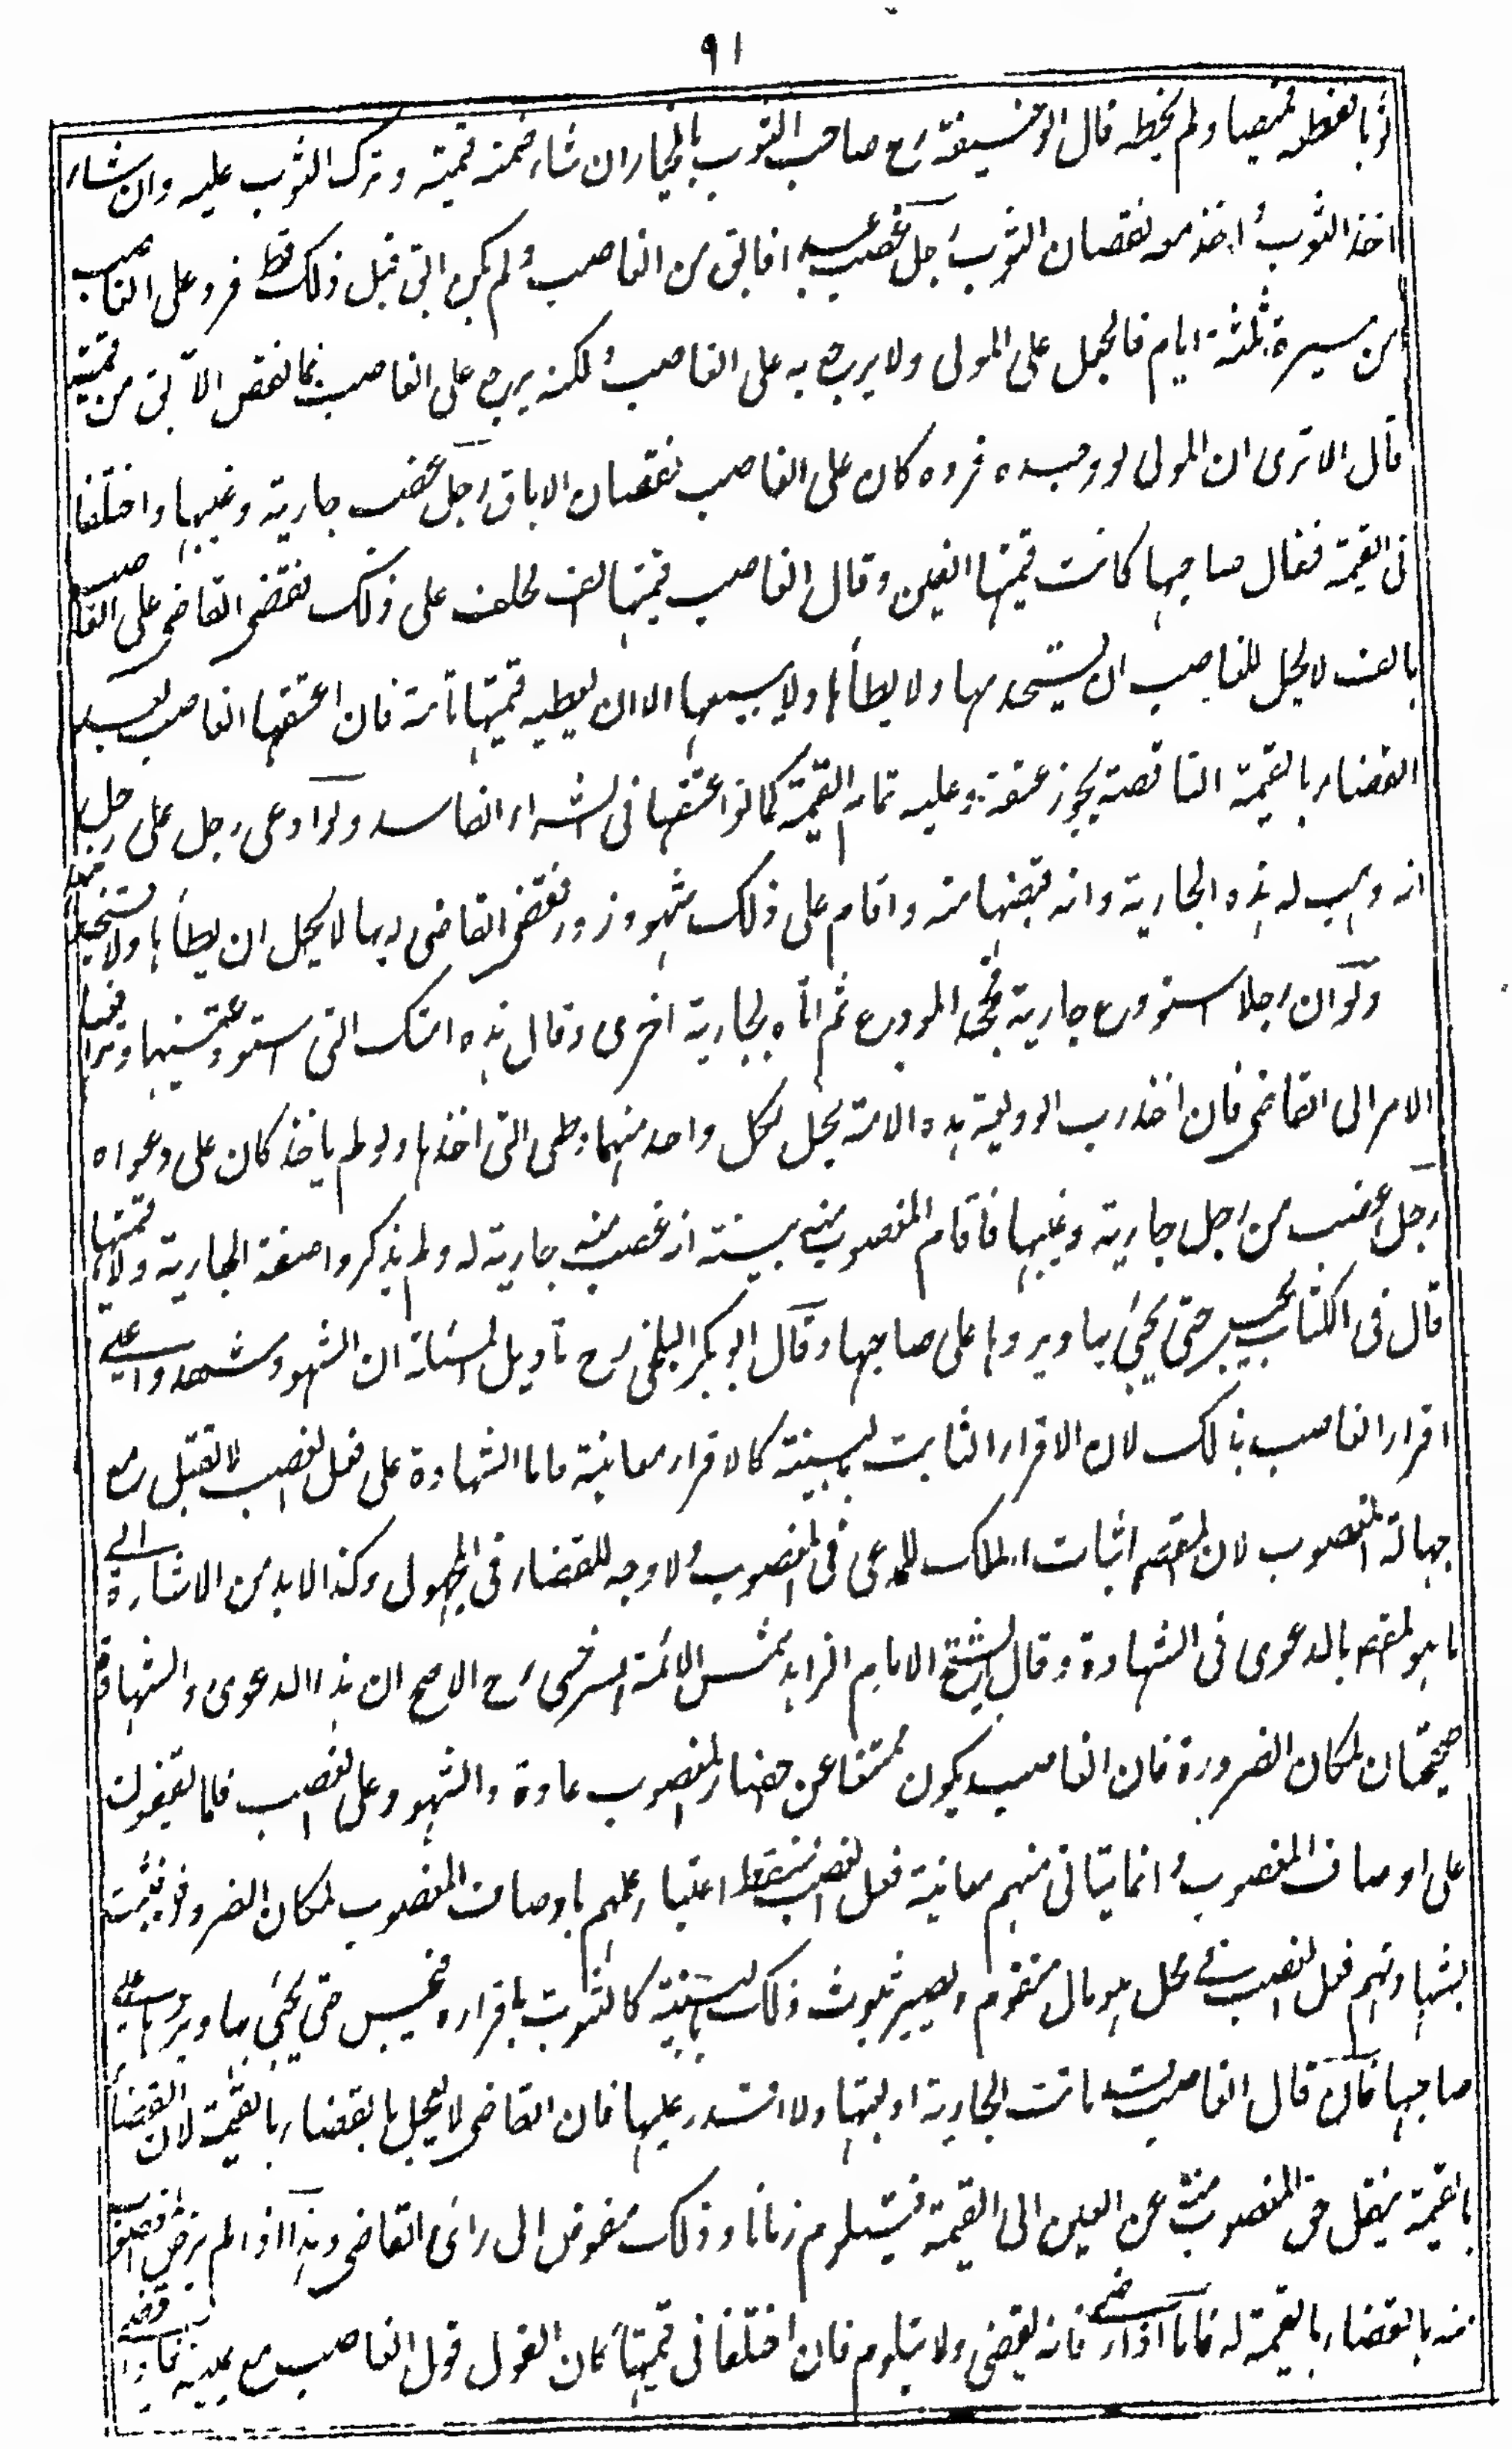 ٩١
ثوبا فقطعه قميصا ولم يخطه قال ابو حنيفة رح صاحب الثوب بالخيار ان شاء ضمنه قيمته وترك الثوب عليه وان شاء
اخذ الثوب واخذ منه نقصان الثوب رجل غصب عبدا فابق من الغاصب ولم يكن ابق قبل ذلك قط فرد على الغاصب
من مسيرة ثلثة ايام فالجعل على المولى ولا يرجع به على الغاصب ولكنه يرجع على الغاصب بما نقص الآبق من قيمته
قال الا ترى ان المولى لو وجده فرده كان على الغاصب نقصان الاباق رجل غصب جارية وغيبها واختلفا
فى القيمة فقال صاحبها كانت قيمتها الفين وقال الغاصب قيمتها الف فحلف على ذلك فقضى القاضى على الغاصب
بالف لا يحل للغاصب ان يستخدمها ولا يطأها ولا يبيعها الا ان يعطيه قيمتها تامة فان اعتقها الغاصب بعد
القضاء بالقيمة الناقصة يجوز عتقه وعليه تمام القيمة كما لو اعتقها فى الشراء الفاسد ولو ادعى رجل على رجل
انه وهب له هذه الجارية وانه قبضها منه واقام على ذلك شهود زور فقضى القاضى له بها لا يحل ان يطأها ولا يستخدمها
ولو ان رجلا استودع جارية فجحد المودع ثم اتاه بجارية اخرى وقال هذه امتك التى استودعتنيها وترافعا
الامر الى القاضى فان اخذ رب الوديعة هذه الامة يحل لكل واحد منهما وطى التى اخذها ولو لم ياخذ كان على دعواه
رجل غصب من رجل جارية وغيبها فاقام المغصوب منه بينة انه غصب منه جارية له ولم يذكروا صفة الجارية ولا قيمتها
قال فى الكتاب يحبس حتى يجئ بها ويردها على صاحبها وقال ابو بكر البلخى رح تاويل المسئلة ان الشهود شهدوا على
اقرار الغاصب بذلك لان الاقرار الثابت بالبينة كالاقرار معاينة فاما الشهادة على فعل الغصب لا تقبل مع
جهالة المغصوب لان المقصود اثبات الملك للمدعى فى المغصوب ولا وجه للقضاء فى المجهول وكذا لا بد من الاشارة الى
ما هو المقصود بالدعوى فى الشهادة وقال الشيخ الامام الزاهد شمس الائمة السرخسى رح الاصح ان هذا الدعوى والشهادة
صحيحتان لمكان الضرورة فان الغاصب يكون ممتنعا عن احضار المغصوب عادة والشهود على الغصب قلما يقفون
على اوصاف المغصوب وانما يتاتى منهم معاينة فعل الغصب فيسقط اعتبار علمهم باوصاف المغصوب لمكان الضرورة فيثبت
بشهادتهم فعل الغصب فى محل هو مال متقوم ويصير ثبوت ذلك بالبينة كالثبوت باقراره فيحبس حتى يجئ بها ويردها على
صاحبها فان قال الغاصب قد ماتت الجارية او بعتها ولا اقتدر عليها فان القاضى لا يعجل بالقضاء بالقيمة لان القضاء
بالقيمة ينقل حق المغصوب منه عن العين الى القيمة فيتلوم زمانا وذلك مفوض الى رأى القاضى وهذا اذا لم يرض المغصوب
منه بالقضاء بالقيمة له فاما اذا رضى فانه يقضى ولا يتلوم فان اختلفا فى قيمتها كان القول قول الغاصب مع يمينه فاذا قضى